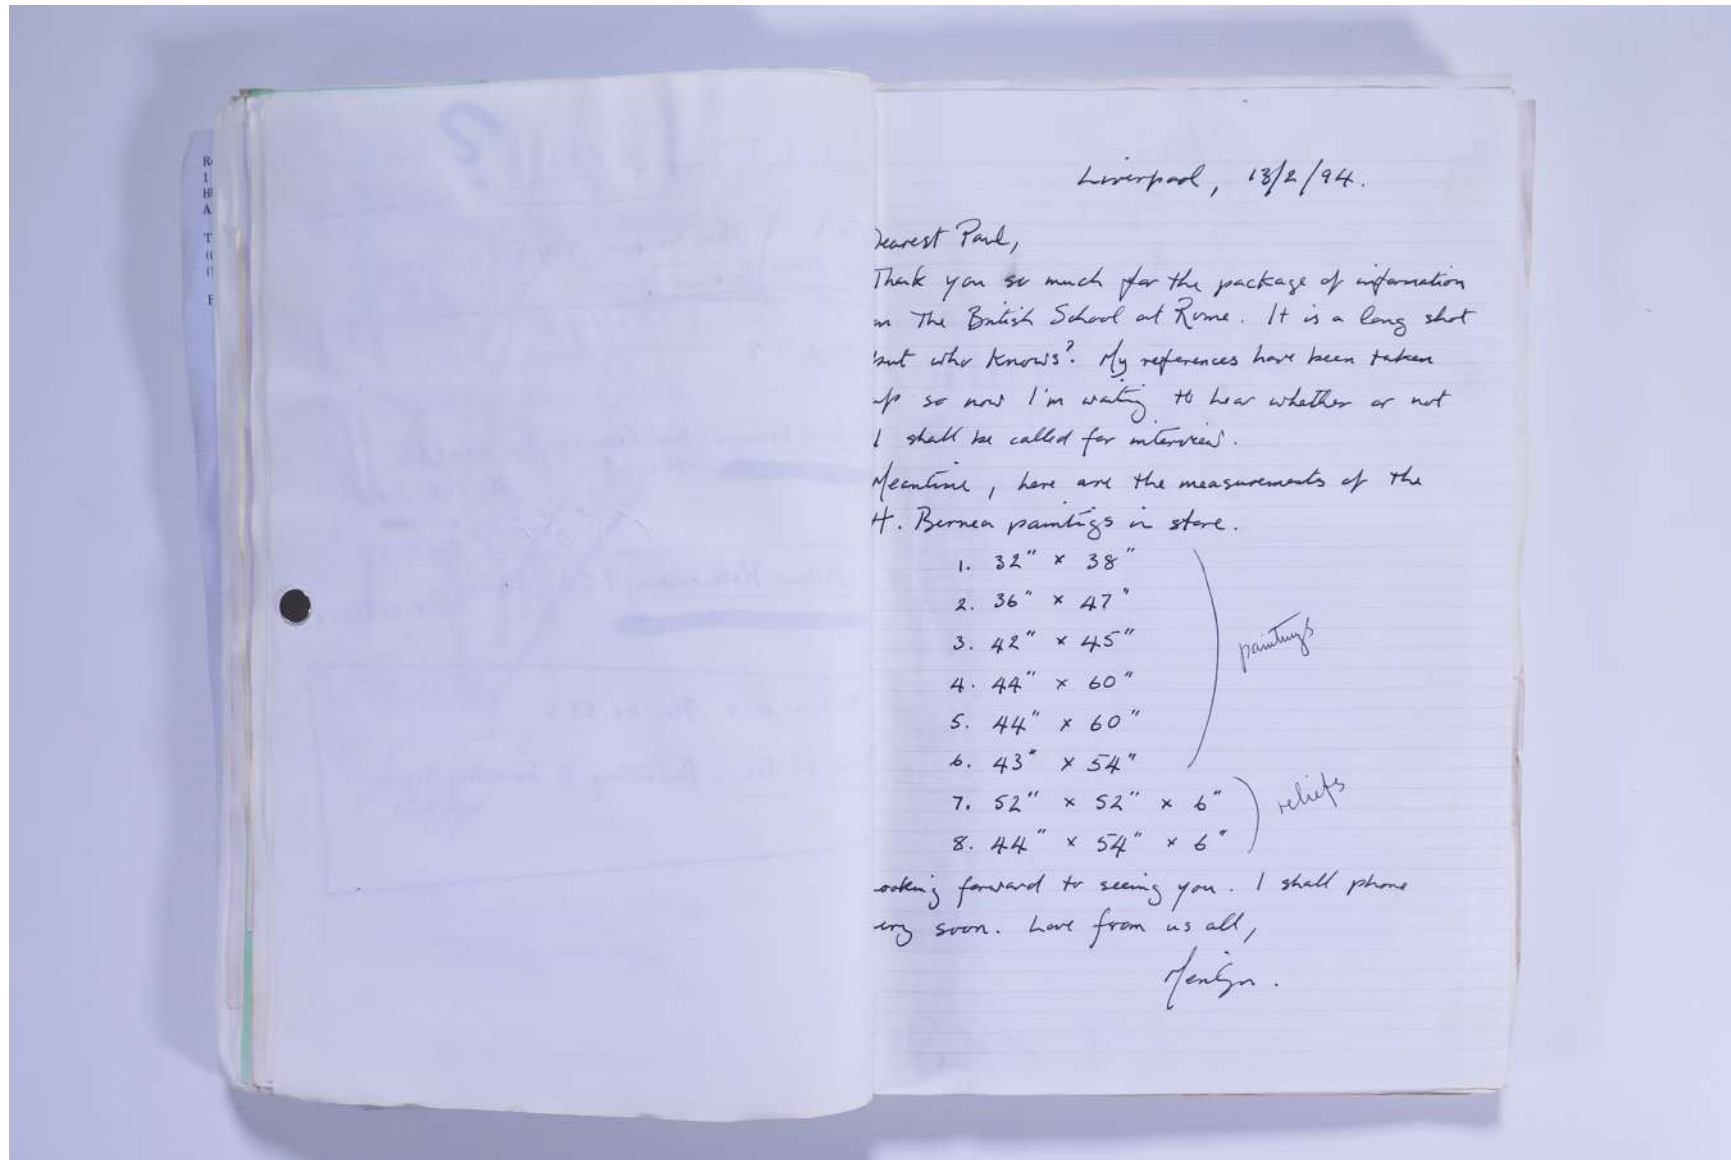 R
1
H
A
T
F
Liverpool, 13/2/94.
Dearest Paul,
Thank you so much for the package of information
on The British School at Rome. It is a long shot
but who knows? My references have been taken
up so now I'm waiting to hear whether or not
I shall be called for interview.
Meantime, here are the measurements of the
H. Bernea paintings in store.
1. 32" × 38"
2. 36" × 47"
3. 42" × 45"
4. 44" × 60"
5. 44" × 60"
6. 43" × 54"
paintings
7. 52" × 52" × 6"
8. 44" × 54" × 6"
reliefs
ooking forward to seeing you. I shall phone
ery soon. Love from us all,